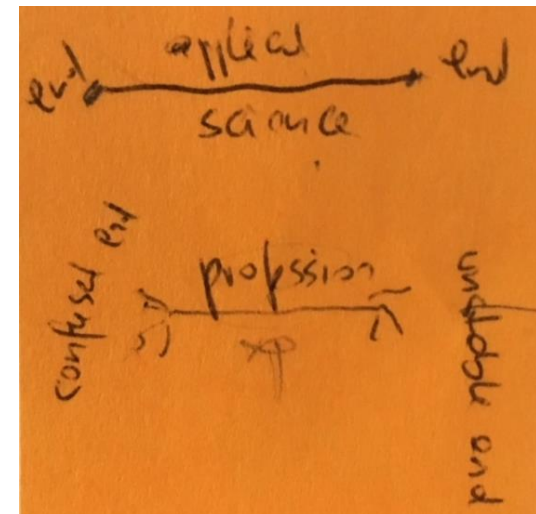 end
applied
end
science
confused end
profession
xp
unstable end